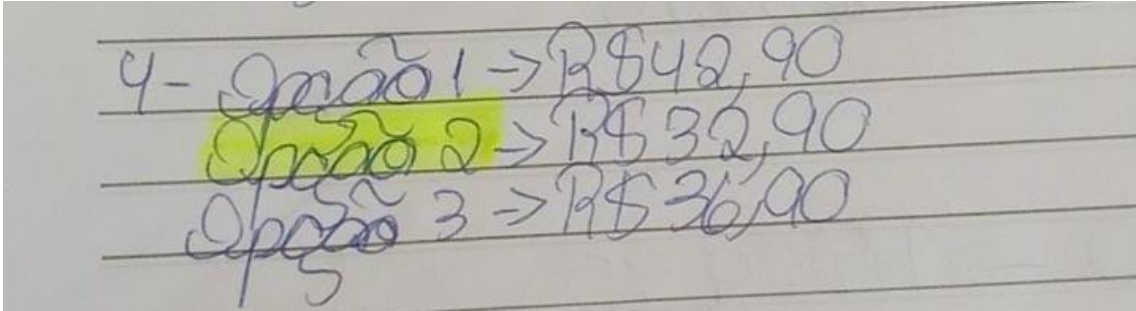 4- Opção 1 -> R$42,90
Opção 2 -> R$32,90
Opção 3 -> R$36,90